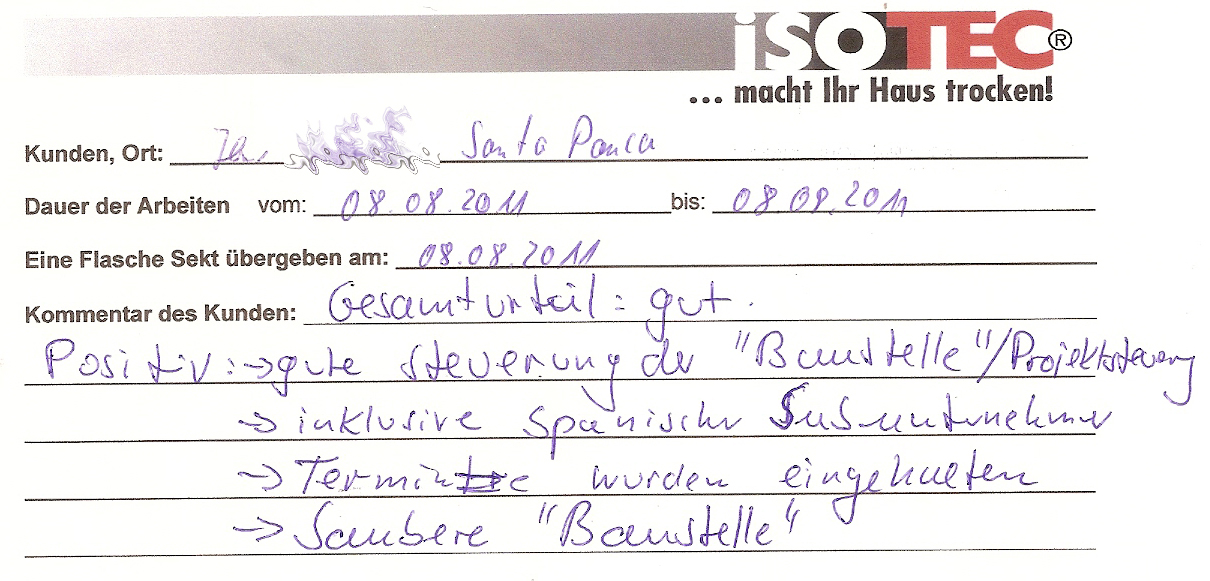 ISOTEC®
... macht Ihr Haus trocken!
Kunden, Ort: Santa Ponca
Dauer der Arbeiten vom: 08.08.2011 bis: 08.09.2011
Eine Flasche Sekt übergeben am: 08.08.2011
Kommentar des Kunden: Gesamturteil: gut.
Positiv: → gute Steuerung der "Baustelle"/Projektsteuerung
→ inklusive spanischer Subunternehmer
→ Termine wurden eingehalten
→ Saubere "Baustelle"